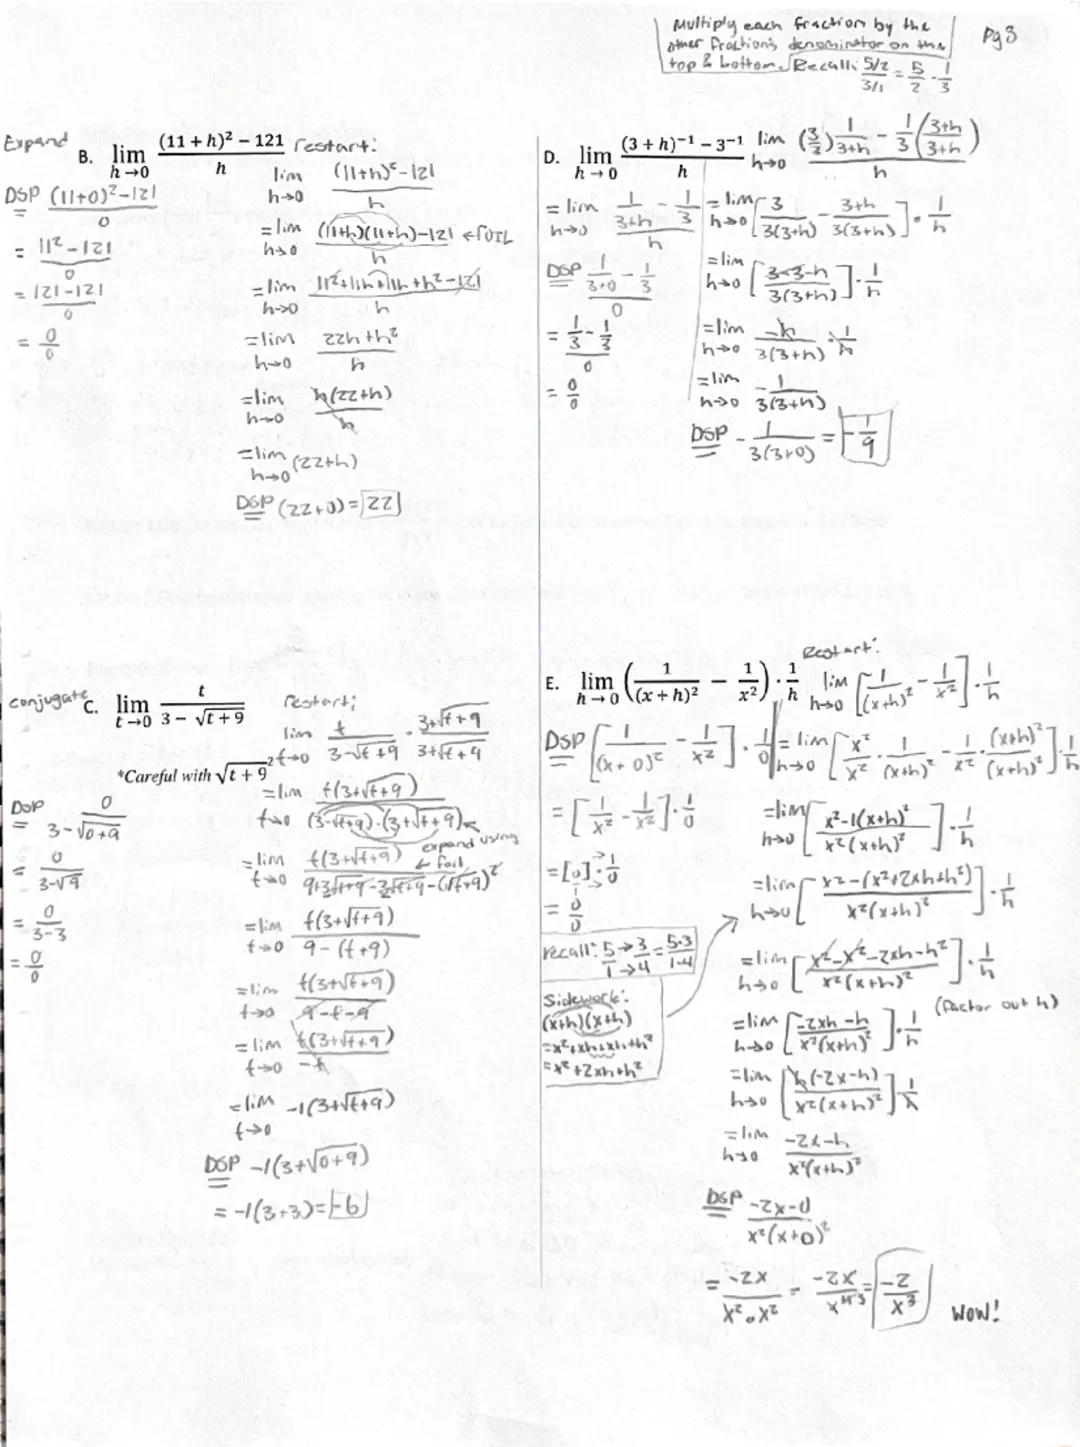 Multiply each fraction by the
other fraction's denominator on the
top & bottom. Recall: 5/2 / 3/1 = 5/2 · 1/3
Pg 3
Expand
B. lim h→0 (11 + h)² − 121 / h
DSP (11+0)²-121 / 0
= 11²-121 / 0
= 121-121 / 0
= 0/0
restart:
lim h→0 (11+h)²-121 / h
= lim h→0 (11+h)(11+h)-121 / h ←FOIL
= lim h→0 11²+11h+11h+h²-121 / h
= lim h→0 22h+h² / h
= lim h→0 h(22+h) / h
= lim h→0 (22+h)
DSP (22+0)=22
D. lim h→0 (3 + h)⁻¹ − 3⁻¹ / h
= lim h→0 1/3+h - 1/3 / h
DSP 1/3+0 - 1/3 / 0
= 1/3 - 1/3 / 0
= 0/0
lim h→0 (3/3) 1/3+h - 1/3 (3+h/3+h) / h
= lim h→0 [3/3(3+h) - 3+h/3(3+h)] · 1/h
= lim h→0 [3-3-h / 3(3+h)] · 1/h
= lim h→0 -h/3(3+h) · 1/h
= lim h→0 - 1/3(3+h)
DSP - 1/3(3+0) = -1/9
conjugate
C. lim t→0 t / 3 − √t + 9
*Careful with √t + 9 ²
DSP 0 / 3-√0+9
= 0 / 3-√9
= 0 / 3-3
= 0/0
restart:
lim t→0 t / 3-√t+9 · 3+√t+9 / 3+√t+9
= lim t→0 t(3+√t+9) / (3-√t+9)·(3+√t+9)
expand using
← foil
= lim t→0 t(3+√t+9) / 9+3√t+9-3√t+9-(√t+9)²
= lim t→0 t(3+√t+9) / 9-(t+9)
= lim t→0 t(3+√t+9) / 9-t-9
= lim t→0 t(3+√t+9) / -t
= lim t→0 -1(3+√t+9)
DSP -1(3+√0+9)
= -1(3+3)=-6
E. lim h→0 (1/(x + h)² − 1/x²) · 1/h
DSP [1/(x+0)² - 1/x²] · 1/0
= [1/x² - 1/x²] · 1/0
= [0] · 1/0
= 0/0
recall: 5/1 → 3/4 = 5·3/1·4
Sidework:
(x+h)(x+h)
= x²+xh+xh+h²
= x²+2xh+h²
Restart:
lim h→0 [1/(x+h)² - 1/x²] · 1/h
= lim h→0 [x²/x² · 1/(x+h)² - 1/x² · (x+h)²/(x+h)²] · 1/h
= lim h→0 [x²-1(x+h)² / x²(x+h)²] · 1/h
= lim h→0 [x²-(x²+2xh+h²) / x²(x+h)²] · 1/h
= lim h→0 [x²-x²-2xh-h² / x²(x+h)²] · 1/h
(factor out h)
= lim h→0 [-2xh-h / x²(x+h)²] · 1/h
= lim h→0 [h(-2x-h) / x²(x+h)²] · 1/h
= lim h→0 -2x-h / x²(x+h)²
DSP -2x-0 / x²(x+0)²
= -2x / x²·x² = -2x / x⁴ ³ = -2/x³
WOW!